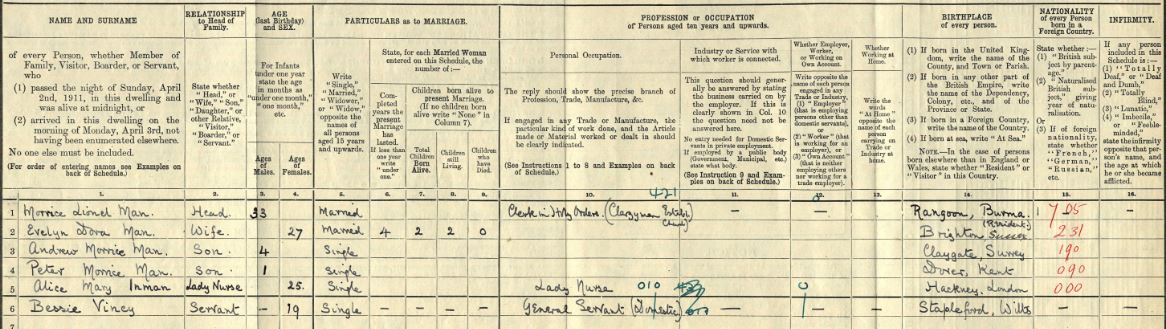 NAME AND SURNAME
of every Person, whether Member of
Family, Visitor, Boarder, or Servant,
who
(1) passed the night of Sunday, April
2nd, 1911, in this dwelling and
was alive at midnight, or
(2) arrived in this dwelling on the
morning of Monday, April 3rd, not
having been enumerated elsewhere.
No one else must be included.
(For order of entering names see Examples on
back of Schedule.)
RELATIONSHIP
to Head of
Family.
State whether
"Head," or
"Wife," "Son,"
"Daughter," or
other Relative,
"Visitor,"
"Boarder," or
"Servant."
AGE
(last Birthday)
and SEX.
For Infants
under one year
state the age
in months as
"under one month,"
"one month,"
etc.
Ages
of
Males.
Ages
of
Females.
PARTICULARS as to MARRIAGE.
Write
"Single,"
"Married,"
"Widower,"
or "Widow,"
opposite the
names of
all persons
aged 15 years
and upwards.
State, for each Married Woman
entered on this Schedule, the
number of:—
Completed
years the
present
Marriage
has
lasted.
If less than
one year
write
"under
one."
Children born alive to
present Marriage.
(If no children
born alive
write "None" in
Column 7).
Total
Children
Born
Alive.
Children
still
Living.
Children
who
have
Died.
PROFESSION or OCCUPATION
of Persons aged ten years and upwards.
Personal Occupation.
The reply should show the precise branch of
Profession, Trade, Manufacture, &c.
If engaged in any Trade or Manufacture, the
particular kind of work done, and the Article
made or Material worked or dealt in should
be clearly indicated.
(See Instructions 1 to 8 and Examples on back
of Schedule.)
Industry or Service with
which worker is connected.
This question should generally
be answered by stating
the business carried on by
the employer. If this is
clearly shown in Col. 10
the question need not be
answered here.
No entry needed for Domestic Servants
in private employment.
If employed by a public body
(Government, Municipal, etc.)
state what body.
(See Instruction 9 and Examples
on back of Schedule.)
Whether Employer,
Worker,
or Working on
Own Account.
Write opposite the
name of each person
engaged in any
Trade or Industry,
(1) "Employer"
(that is employing
persons other than
domestic servants),
or
(2) "Worker" (that
is working for an
employer), or
(3) "Own Account"
(that is neither
employing others
nor working for a
trade employer).
Whether
Working at
Home.
Write the
words
"At Home"
opposite the
name of each
person
carrying on
Trade or
Industry at
home.
BIRTHPLACE
of every person.
(1) If born in the United Kingdom,
write the name of the
County, and Town or Parish.
(2) If born in any other part of
the British Empire, write
the name of the Dependency,
Colony, etc., and of the
Province or State.
(3) If born in a Foreign Country,
write the name of the Country.
(4) If born at sea, write "At Sea."
NOTE.—In the case of persons
born elsewhere than in England or
Wales, state whether "Resident" or
"Visitor" in this Country.
NATIONALITY
of every Person
born in a
Foreign Country.
State whether:—
(1) "British subject
by parentage."
(2) "Naturalised
British subject,"
giving
year of naturalisation.
Or
(3) If of foreign
nationality,
state whether
"French,"
"German,"
"Russian,"
etc.
INFIRMITY.
If any person
included in this
Schedule is:—
(1) "Totally
Deaf," or "Deaf
and Dumb,"
(2) "Totally
Blind,"
(3) "Lunatic,"
(4) "Imbecile,"
or "Feeble-minded,"
state the infirmity
opposite that
person's name,
and the age at
which he or she
became
afflicted.
1. 2. 3. 4. 5. 6. 7. 8. 9. 10. 11. 12. 13. 14. 15. 16.
421
1 Morrice Lionel Man. Head. 33 Married Clerk in Holy Orders. (Clergyman Establ. Church) — — Rangoon, Burma. (Resident) 705 — 1
2 Evelyn Dora Man. Wife. 27 Married 4 2 2 0 Brighton Sussex 231 2
3 Andrew Morrice Man. Son. 4 Single Claygate, Surrey 190 3
4 Peter Morrice Man. Son. 1 Single Dover, Kent 090 4
5 Alice Mary Inman Lady Nurse 25. Single Lady Nurse 010 0 Hackney, London 000 5
6 Bessie Viney Servant — 19 Single General Servant (Domestic) — Stapleford, Wilts — 6